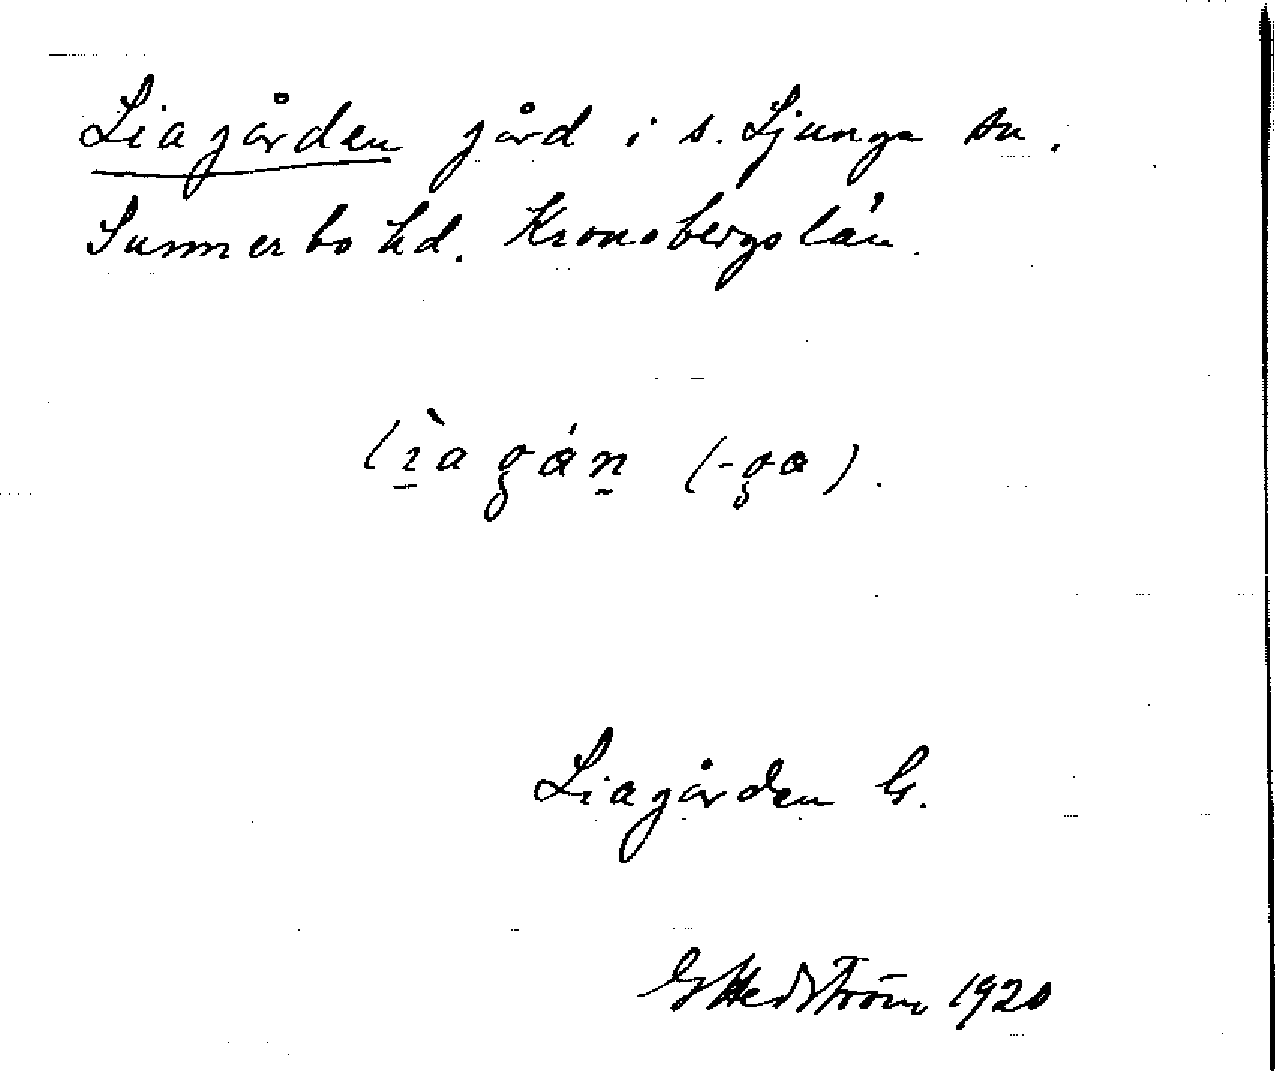 Liagården gård i s. Ljunga sn.
Sunnerbo hd. Kronobergs län.
lìagán (-ga).
Liagården G.
G Hedström 1920